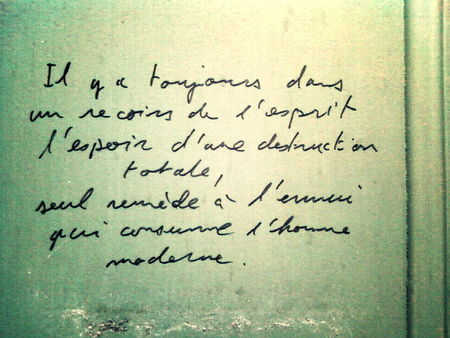 Il y a toujours dans
un recoins de l'esprit
l'espoir d'une destruction
totale,
seul remède à l'ennui
qui consume l'homme
moderne.